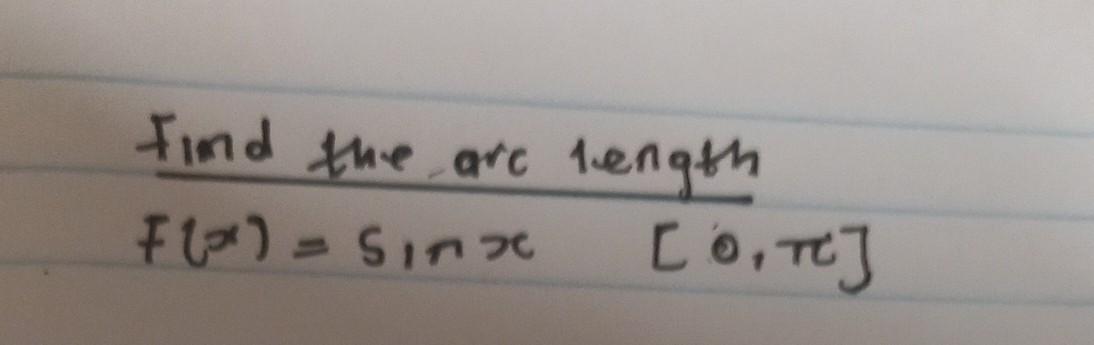 Find the arc length
F(x) = sinx [0, π]